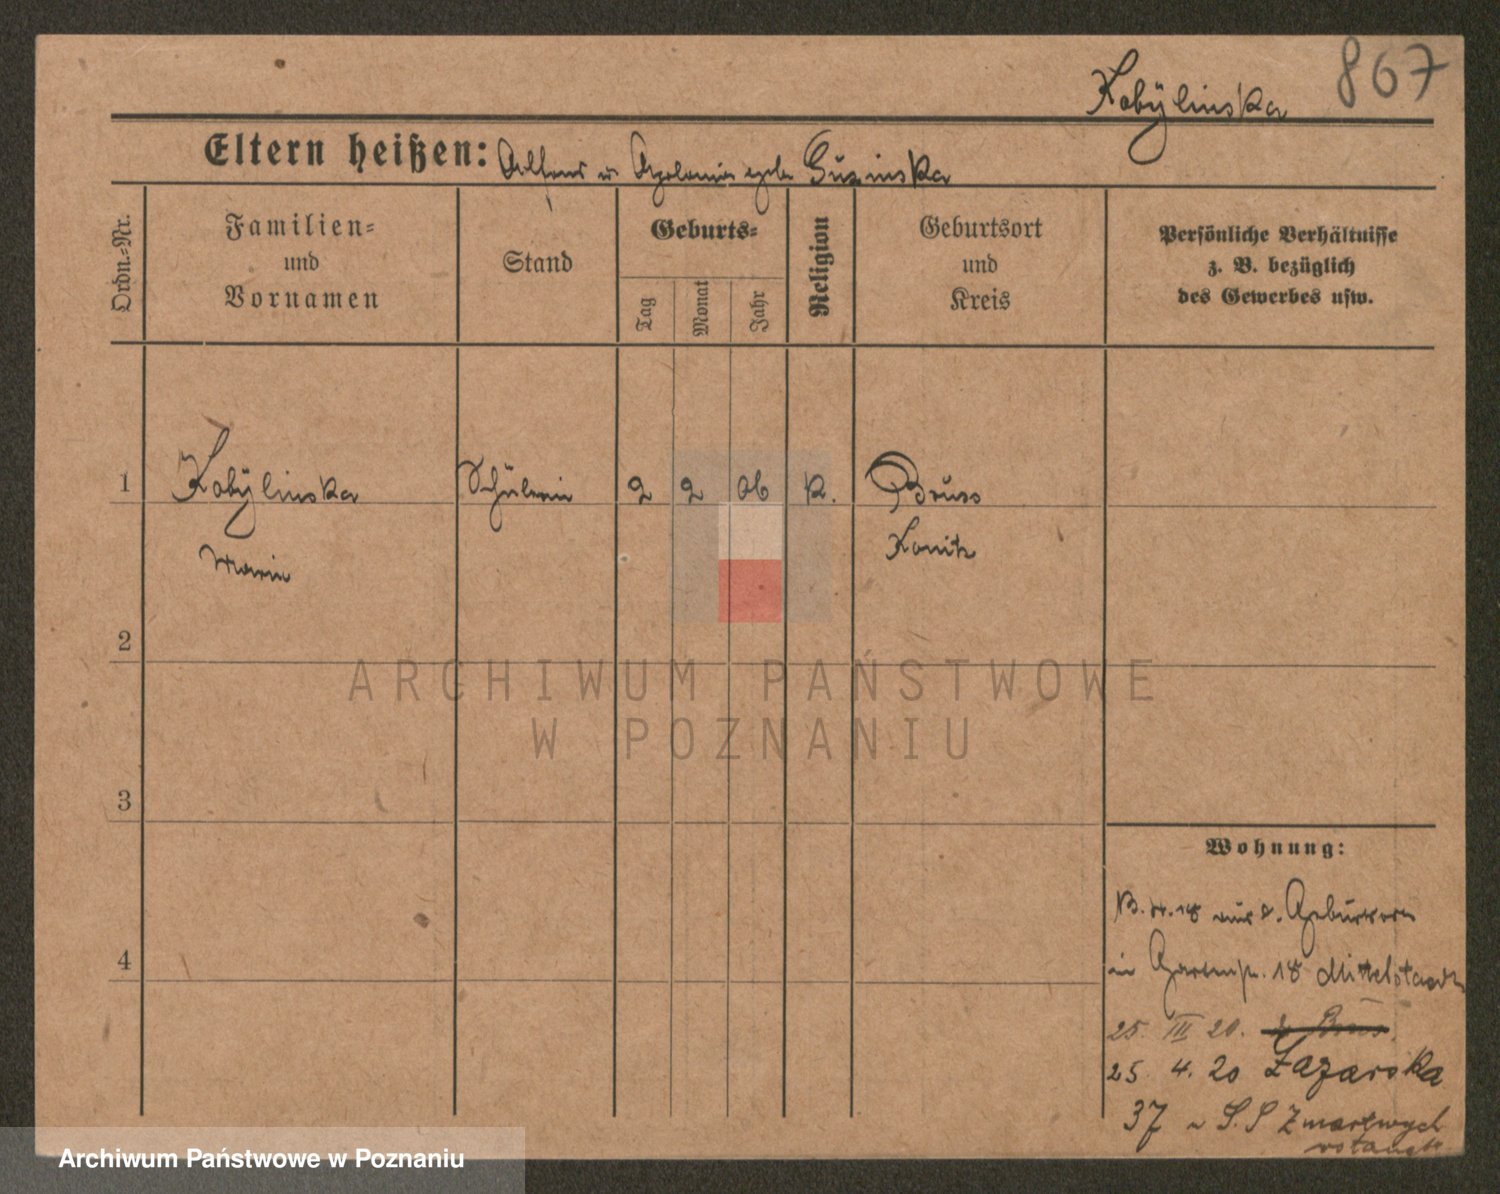 Kobÿlinska 867
Eltern heißen: Alfons u Apolonia geb. Guzinska
Ordn.-Nr.
Familien-
und
Vornamen
Stand
Geburts-
Tag
Monat
Jahr
Religion
Geburtsort
und
Kreis
Persönliche Verhältnisse
z. B. bezüglich
des Gewerbes usw.
1 Kobÿlinska Schülerin 2 2 06 K. Bruss
Maria Konitz
2
ARCHIWUM PAŃSTWOWE
W POZNANIU
3
Wohnung:
4
18 aus d. Geburtsort
in Gartenstr. 18 Mittelstaedt
25. III 20.
25 4. 20 Łazarska
37 u S.S Zmartwych
wstanek
Archiwum Państwowe w Poznaniu